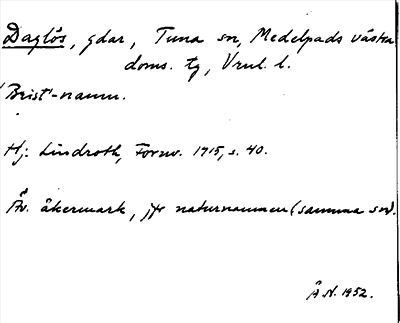 Daglös, gdar, Tuna sn, Medelpads västra
doms. tg, Vrnl. l.
'Brist'-namn.
Hj. Lindroth, Fornv. 1915, s. 40.
Äv. åkermark, jfr naturnamnen (samma sn).
Å N. 1952.